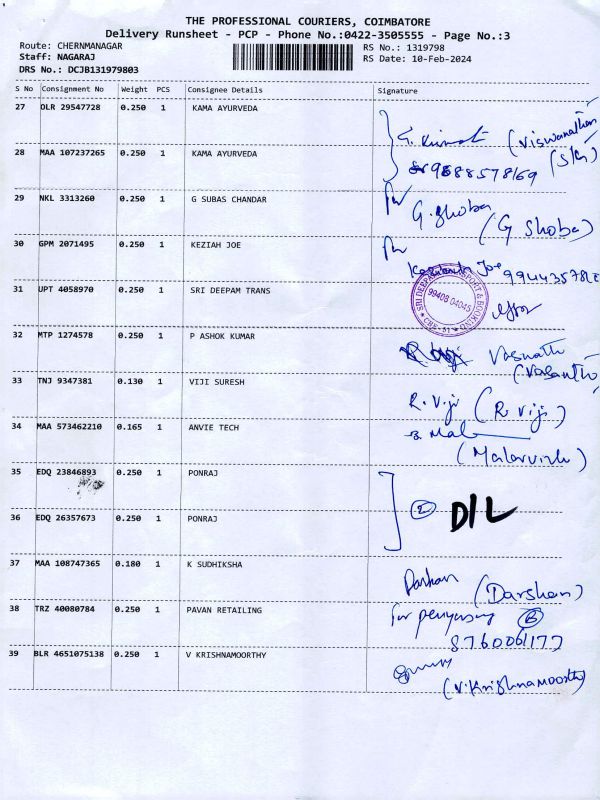 THE PROFESSIONAL COURIERS, COIMBATORE
Delivery Runsheet - PCP - Phone No.:0422-3505555 - Page No.:3
Route: CHERNMANAGAR
RS No.: 1319798
Staff: NAGARAJ
RS Date: 10-Feb-2024
DRS No.: DCJB131979803
S No Consignment No Weight PCS Consignee Details Signature
27 DLR 29547728 0.250 1 KAMA AYURVEDA
(Viswanathan
28 MAA 107237265 0.250 1 KAMA AYURVEDA
9688578169
29 NKL 3313260 0.250 1 G SUBAS CHANDAR
G. Shoba
(G Shoba)
30 GPM 2071495 0.250 1 KEZIAH JOE
Joe
31 UPT 4058970 0.250 1 SRI DEEPAM TRANS
SRI DEEPAM
99408 04045
32 MTP 1274578 0.250 1 P ASHOK KUMAR
(Vasanth)
33 TNJ 9347381 0.130 1 VIJI SURESH
R. Viji (R Viji)
34 MAA 573462210 0.165 1 ANVIE TECH
(Malarvizhi)
35 EDQ 23846893 0.250 1 PONRAJ
2 D/L
36 EDQ 26357673 0.250 1 PONRAJ
37 MAA 108747365 0.180 1 K SUDHIKSHA
Darshan (Darshan)
38 TRZ 40080784 0.250 1 PAVAN RETAILING
for
8760061177
39 BLR 4651075138 0.250 1 V KRISHNAMOORTHY
(V.Krishnamoorthy)